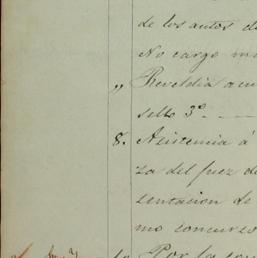 de los autos de
No cargo
„ Reveldia a
sello 3º. —
8. Asistencia á
za del juez de
sentacion de
mo concurso
Por la